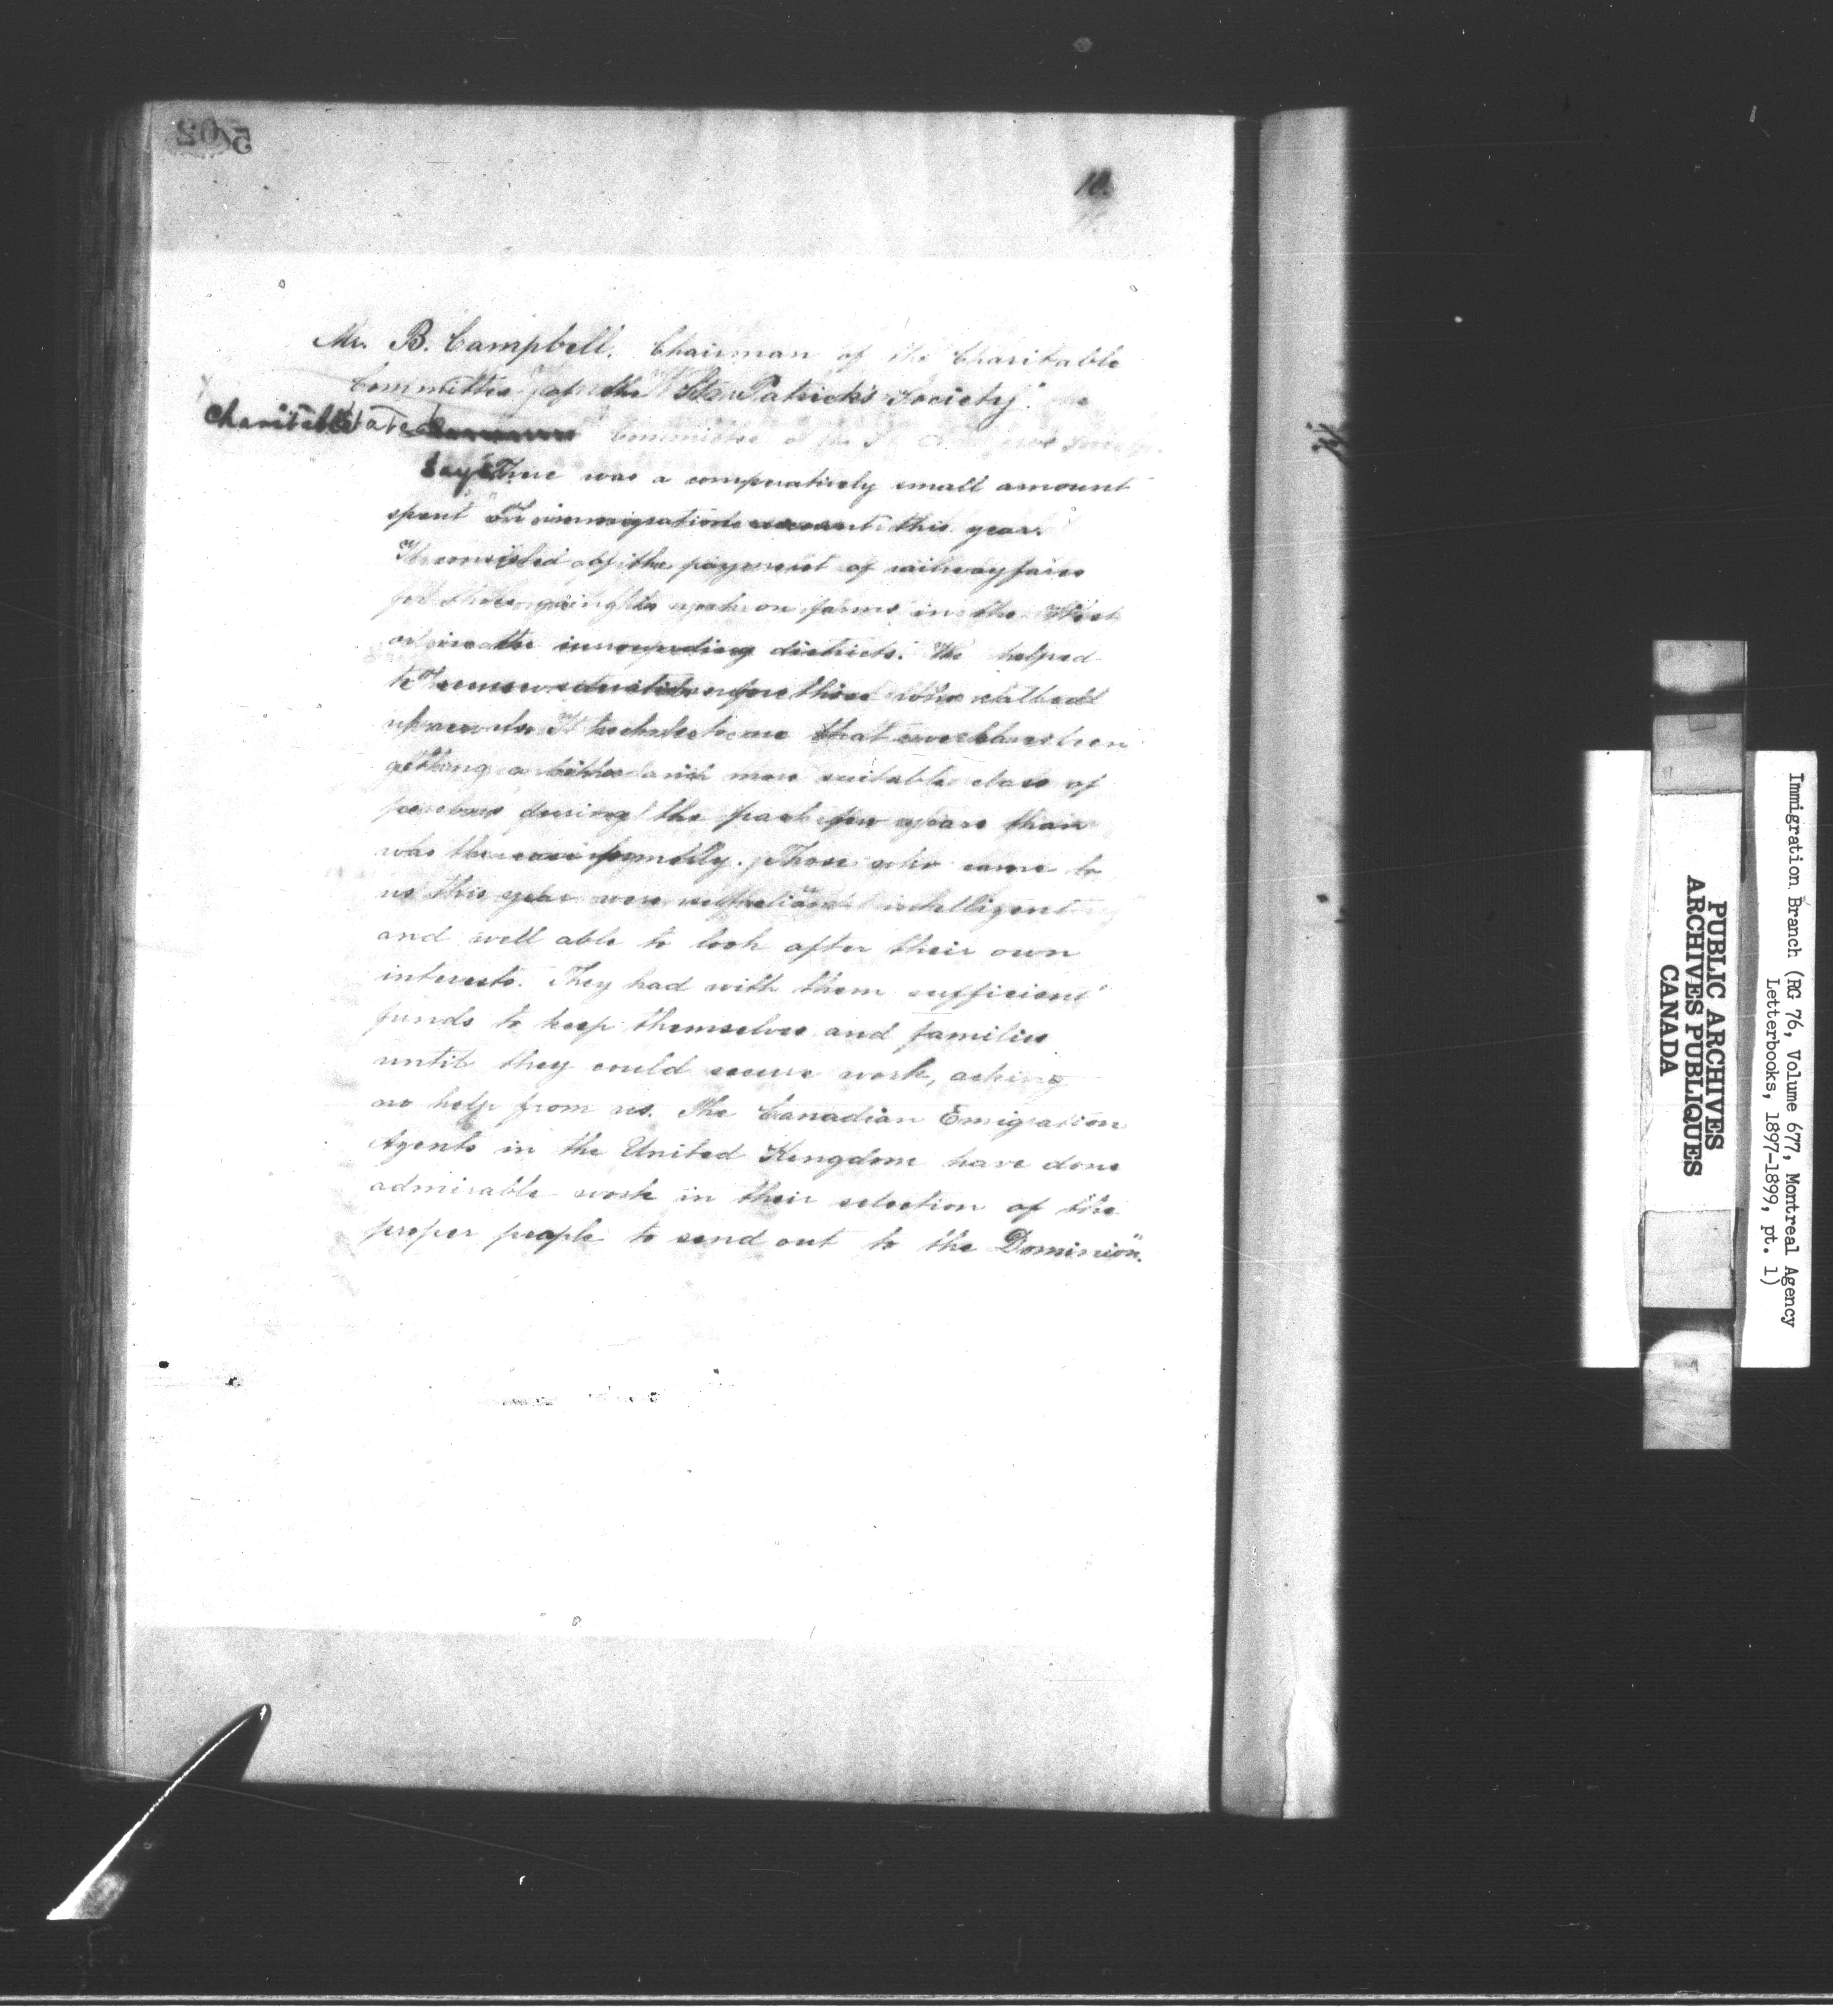 502
10.
Mr. B. Campbell, Chairman of the Charitable
Committee of the St. Patrick's Society."
Charitable Committee of the St. Society.
says There was a comparatively small amount
spent on immigration account this year.
It consisted of the payment of railway fares
for those going to work on farms in the West
or in the surrounding districts. We helped
to those who
that we have been
getting a better and more suitable class of
persons during the past few years than
was the case formerly. Those who came to
us this year were self reliant intelligent
and well able to look after their own
interests. They had with them sufficient
funds to keep themselves and families
until they could secure work, asking
no help from us. The Canadian Emigration
Agents in the United Kingdom have done
admirable work in their selection of the
proper people to send out to the Dominion."
PUBLIC ARCHIVES
ARCHIVES PUBLIQUES
CANADA
Immigration Branch (RG 76, Volume 677, Montreal Agency
Letterbooks, 1897-1899, pt. 1)